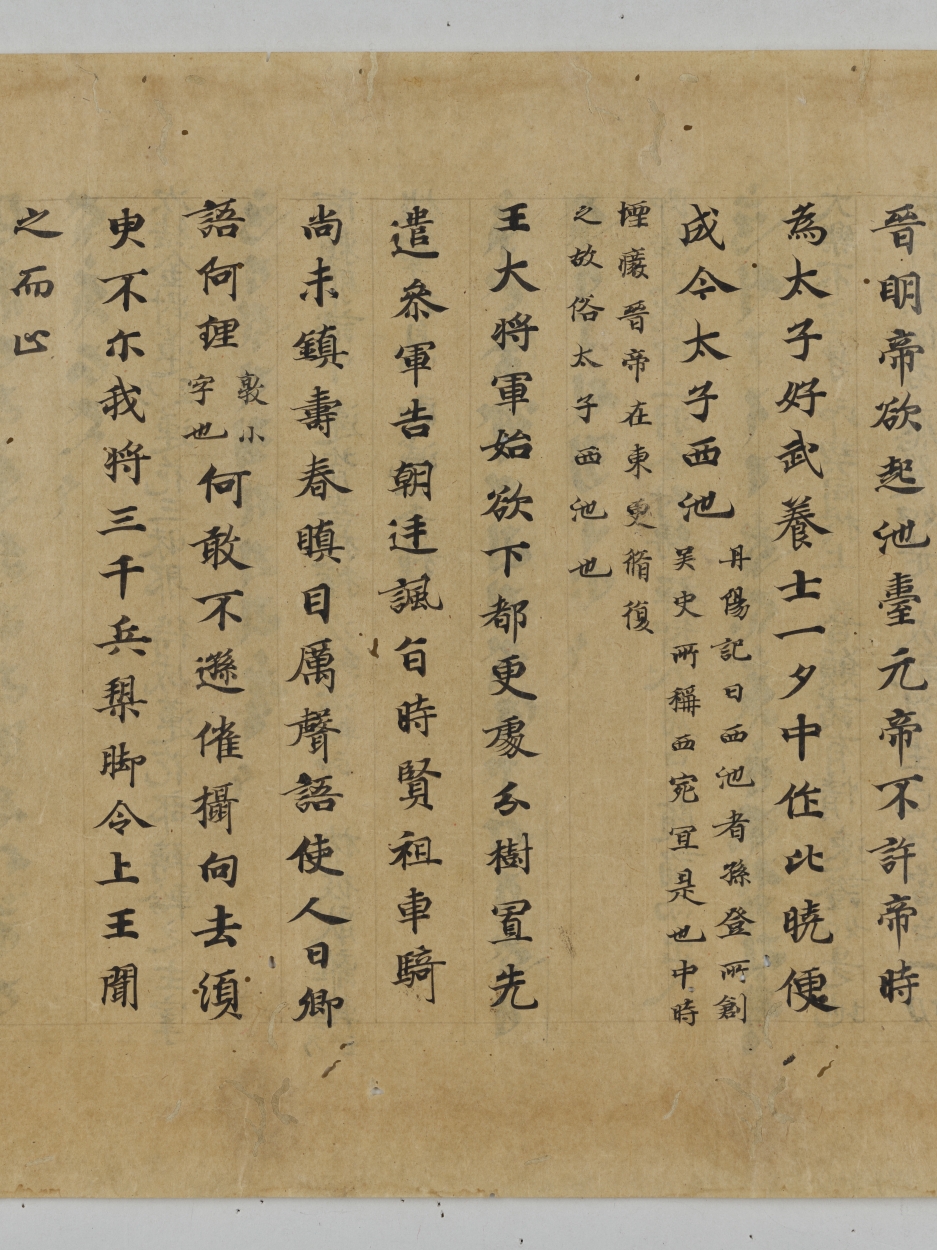 晉明帝欲起池臺元帝不許帝時
為太子好武養士一夕中作比曉便
成今太子西池
丹陽記曰西池者孫登所創
吴史所稱西宛冝是也中時
堙癈晉帝在東更脩復
之故俗太子西池也
王大将軍始欲下都更處分樹置先
遣叅軍告朝廷諷旨時賢祖車騎
尚未鎮壽春瞋目厲聲語使人曰卿
語何狸
敦小
字也
何敢不遜催攝向去須
臾不尓我将三千兵槊脚令上王聞
之而止